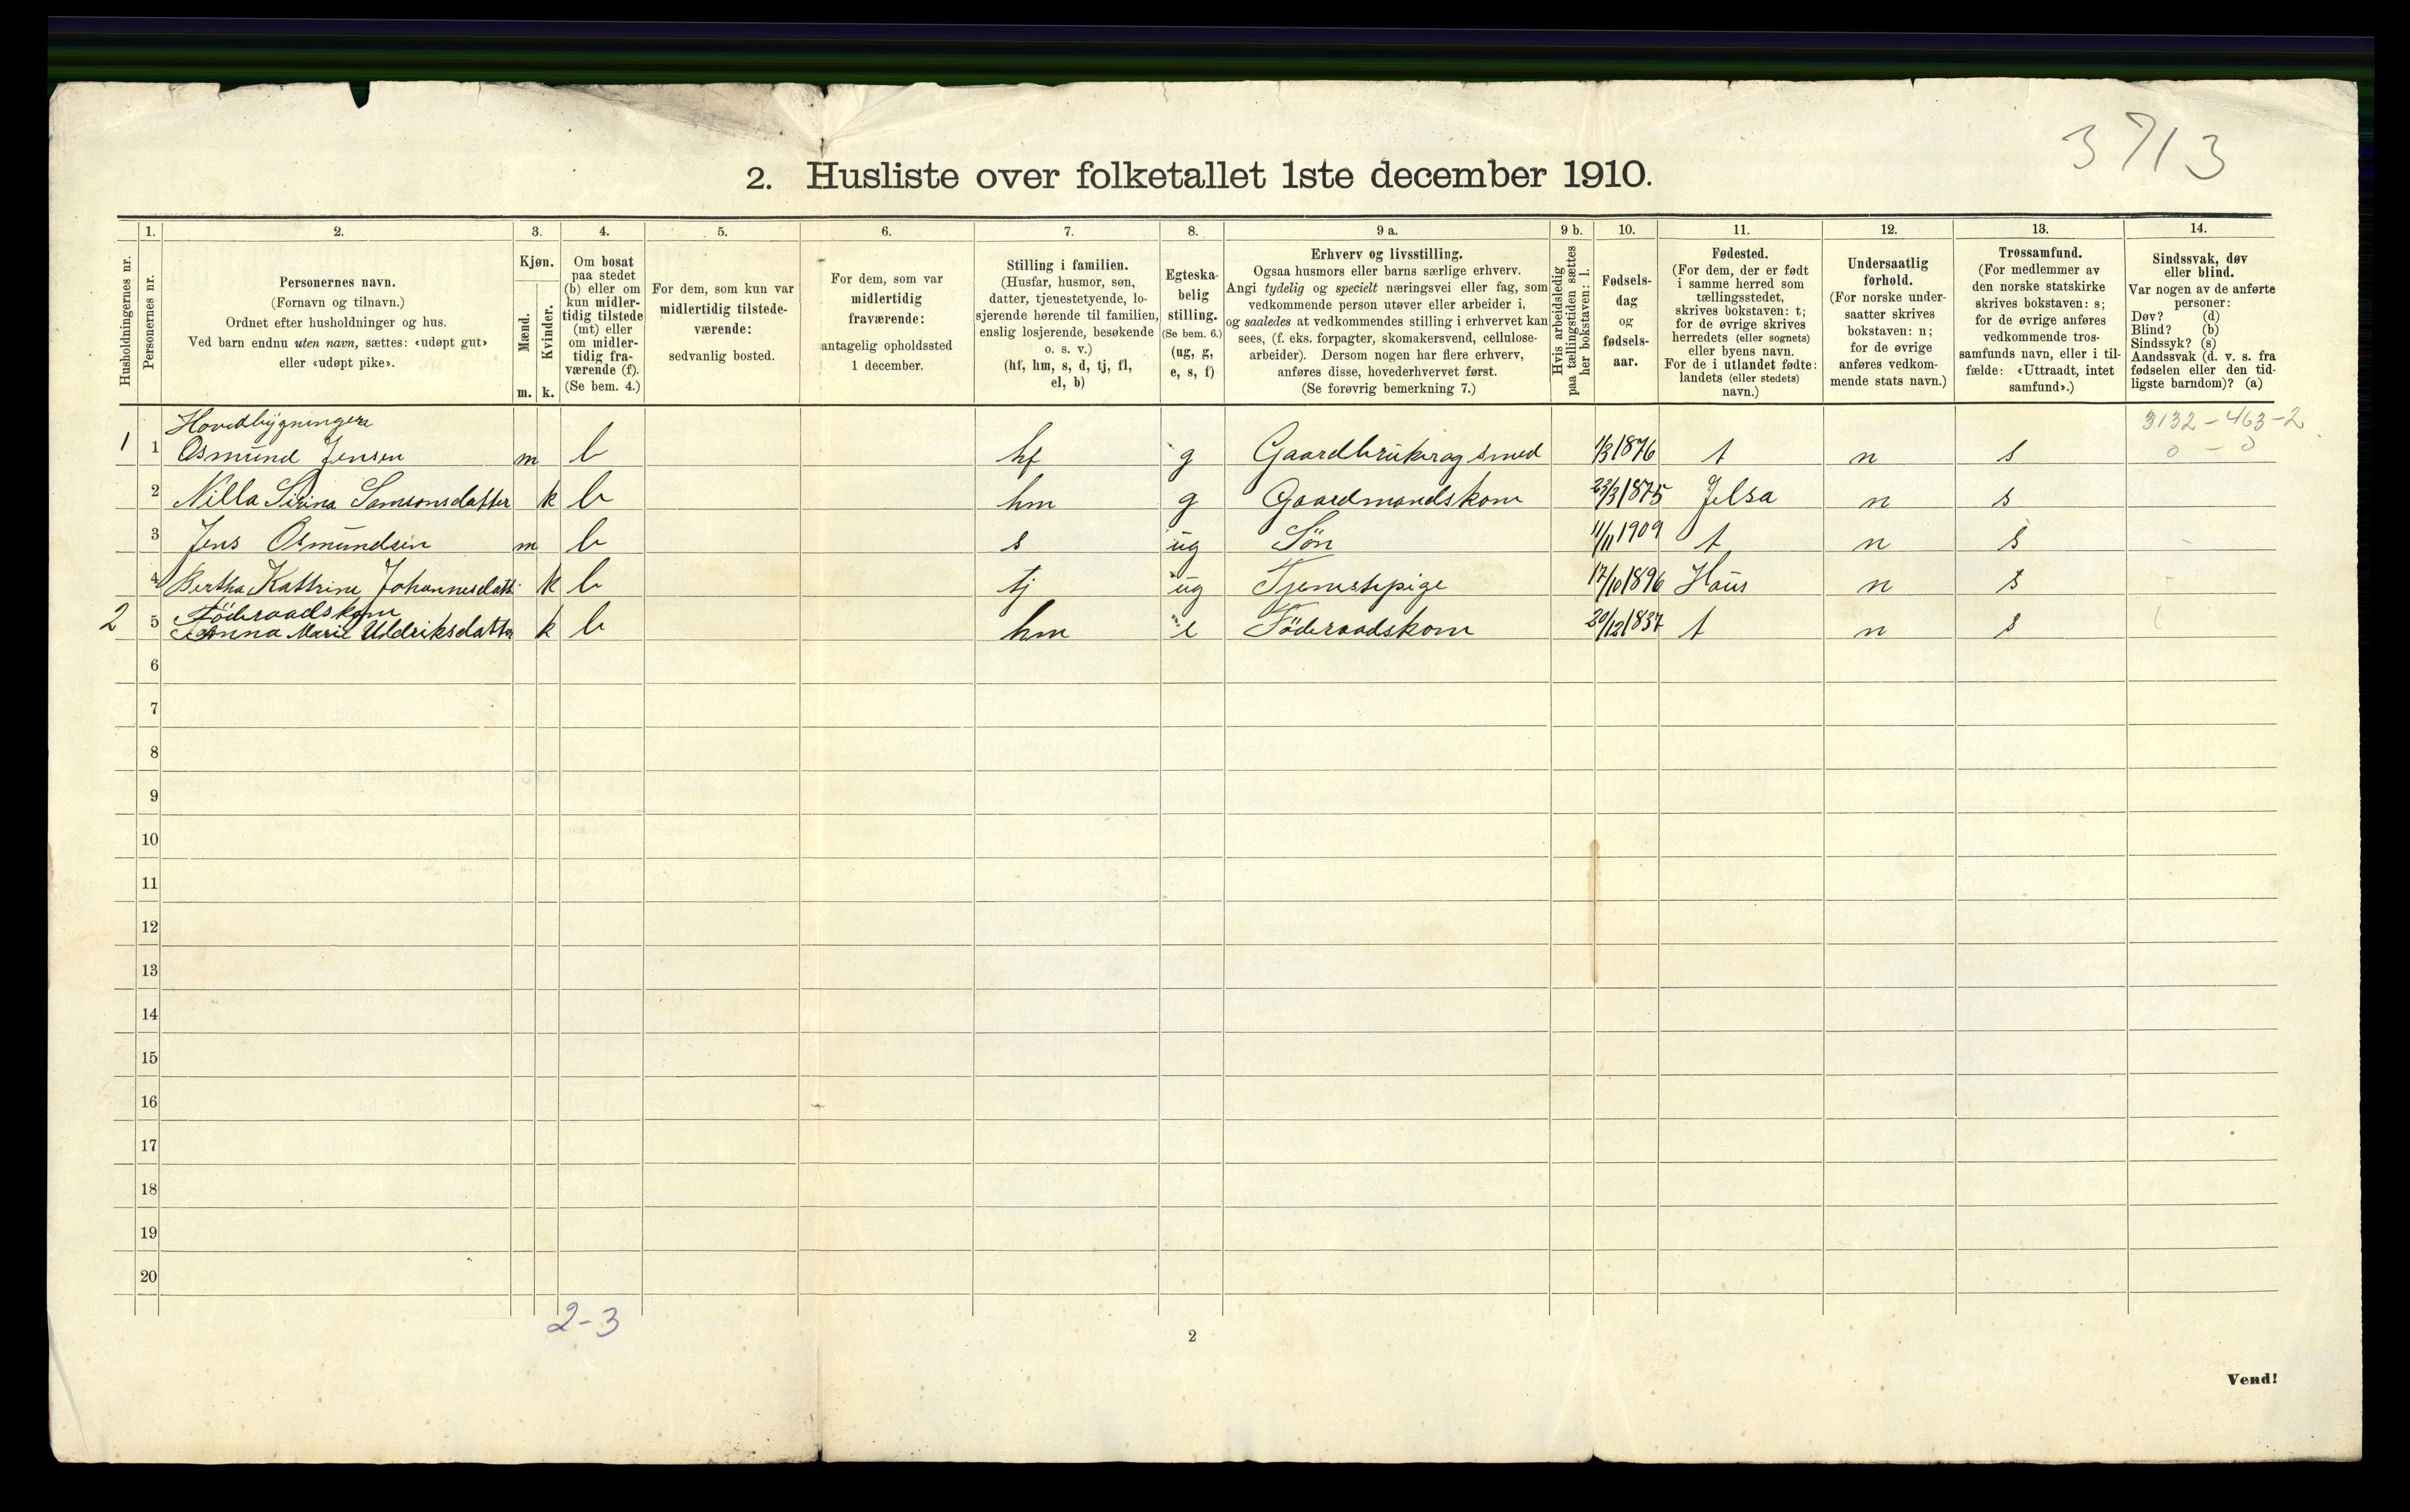 3713
2. Husliste over folketallet 1ste december 1910.
Husholdningernes nr.
1.
Personernes nr.
2.
Personernes navn.
(Fornavn og tilnavn.)
Ordnet efter husholdninger og hus.
Ved barn endnu uten navn, sættes: «udøpt gut»
eller «udøpt pike».
3.
Kjøn.
Mænd.
Kvinder.
m.
k.
4.
Om bosat
paa stedet
(b) eller om
kun midler-
tidig tilstede
(mt) eller
om midler-
tidig fra-
værende (f).
(Se bem. 4.)
5.
For dem, som kun var
midlertidig tilstede-
værende:
sedvanlig bosted.
6.
For dem, som var
midlertidig
fraværende:
antagelig opholdssted
1 december.
7.
Stilling i familien.
(Husfar, husmor, søn,
datter, tjenestetyende, lo-
sjerende hørende til familien,
enslig losjerende, besøkende
o. s. v.)
(hf, hm, s, d, tj, fl,
el, b)
8.
Egteska-
belig
stilling.
(Se bem. 6.)
(ug, g,
e, s, f)
9 a.
Erhverv og livsstilling.
Ogsaa husmors eller barns særlige erhverv.
Angi tydelig og specielt næringsvei eller fag, som
vedkommende person utøver eller arbeider i,
og saaledes at vedkommendes stilling i erhvervet kan
sees, (f. eks. forpagter, skomakersvend, cellulose-
arbeider). Dersom nogen har flere erhverv,
anføres disse, hovederhvervet først.
(Se forøvrig bemerkning 7.)
9 b.
Hvis arbeidsledig
paa tællingstiden sættes
her bokstaven: l.
10.
Fødsels-
dag
og
fødsels-
aar.
11.
Fødested.
(For dem, der er født
i samme herred som
tællingsstedet,
skrives bokstaven: t;
for de øvrige skrives
herredets (eller sognets)
eller byens navn.
For de i utlandet fødte:
landets (eller stedets)
navn.)
12.
Undersaatlig
forhold.
(For norske under-
saatter skrives
bokstaven: n;
for de øvrige
anføres vedkom-
mende stats navn.)
13.
Trossamfund.
(For medlemmer av
den norske statskirke
skrives bokstaven: s;
for de øvrige anføres
vedkommende tros-
samfunds navn, eller i til-
fælde: «Uttraadt, intet
samfund».)
14.
Sindssvak, døv
eller blind.
Var nogen av de anførte
personer:
Døv? (d)
Blind? (b)
Sindssyk? (s)
Aandssvak (d. v. s. fra
fødselen eller den tid-
ligste barndom)? (a)
Hovedbygningen 3132-463-2
1 1 Osmund Jensen m b hf g Gaardbruker og smed 1/3 1876 t n s 0 - 0
2 Nilla Sirina Samsonsdatter k b hm g Gaardmandskone 23/3 1875 Jelsa n s
3 Jens Osmundsen m b s ug Sön 11/11 1909 t n s
4 Bertha Kathrine Johannesdatt. k b tj ug Tjenestepige 17/10 1896 Haus n s
Föderaadskone
2 5 Anna Marie Uldriksdatter k b hm e Föderaadskone 20/12 1837 t n s
6
7
8
9
10
11
12
13
14
15
16
17
18
19
20
2-3
2
Vend!